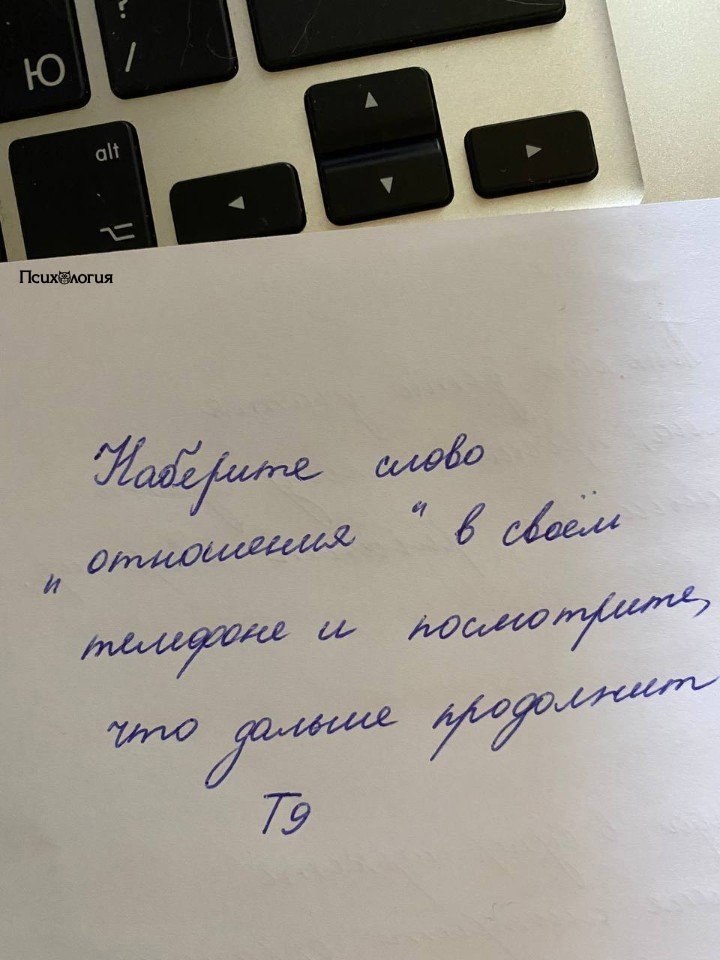 Ю
?
/
alt
Психология
Наберите слово
„отношения“ в своём
телефоне и посмотрите,
что дальше продолжит
Т9